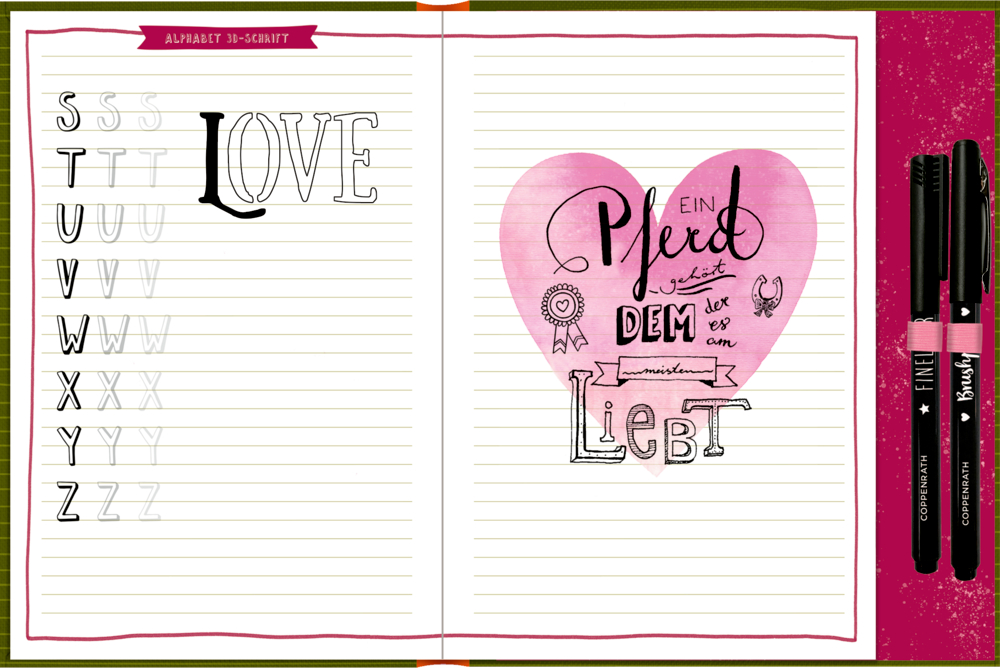 ALPHABET 3D-SCHRIFT
S S S
T T T
U U U
V V V
W W W
X X X
Y Y Y
Z Z Z
LOVE
EIN
Pferd
gehört
DEM
der
es
am
meisten
LiEBT
COPPENRATH
Brushp
COPPENRATH